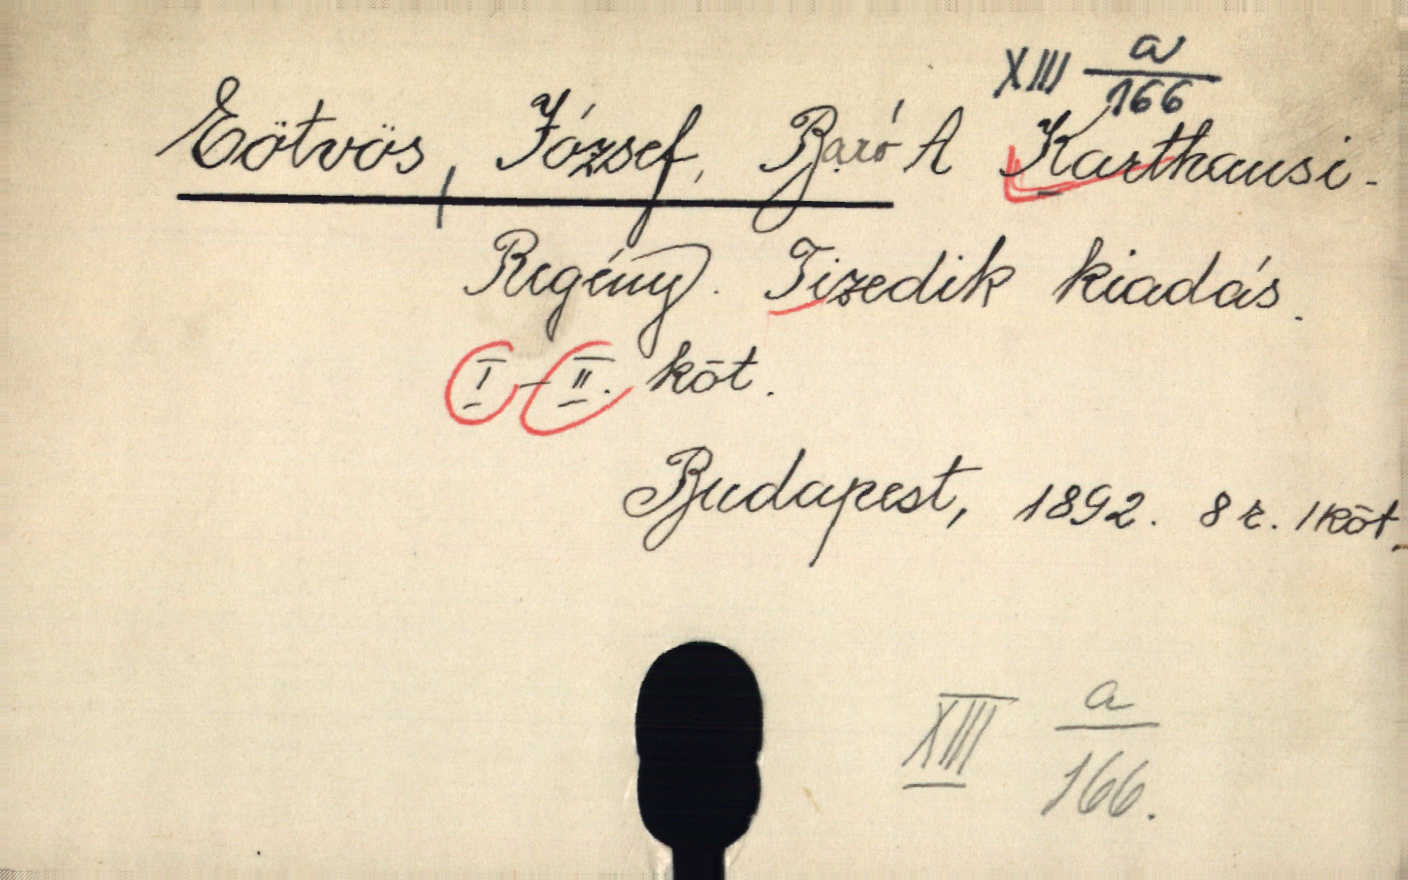 XIII a/166
Eötvös, József, Báró A Karthausi.
Regény. Tizedik kiadás.
I-II. köt.
Budapest, 1892. 8 r. 1 köt.
XIII a/166.